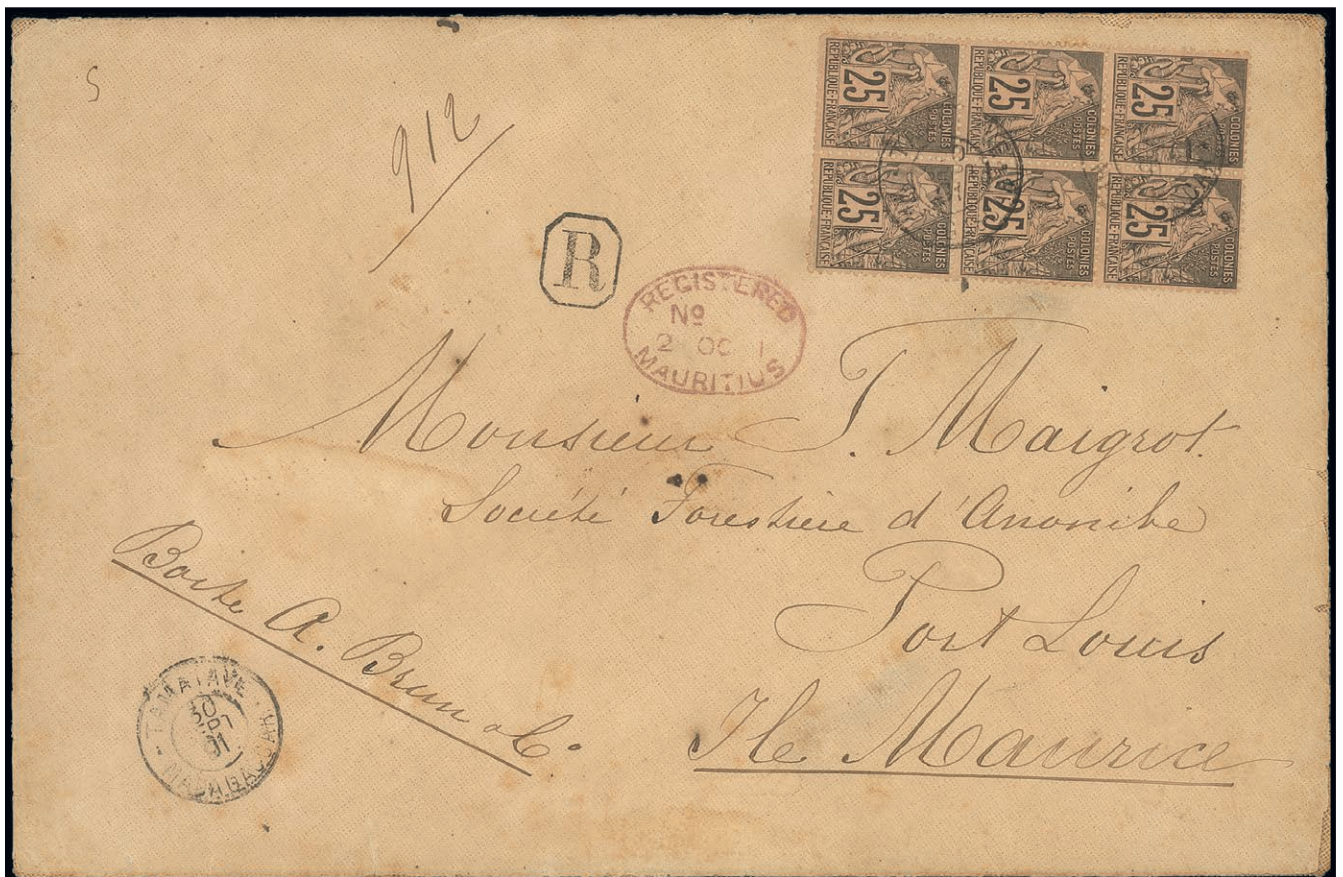 S
912
25 COLONIES POSTES REPUBLIQUE FRANÇAISE
25 COLONIES POSTES REPUBLIQUE FRANÇAISE
25 COLONIES POSTES REPUBLIQUE FRANÇAISE
25 COLONIES POSTES REPUBLIQUE FRANÇAISE
25 COLONIES POSTES REPUBLIQUE FRANÇAISE
25 COLONIES POSTES REPUBLIQUE FRANÇAISE
R
REGISTERED
Nº
2 OC 1
MAURITIUS
Monsieur J. Maigrot
Société Forestière d'Anonibe
Port Louis
Ile Maurice
Boite A. Brun & Co.
TAMATAVE
30
91
MADAGASCAR